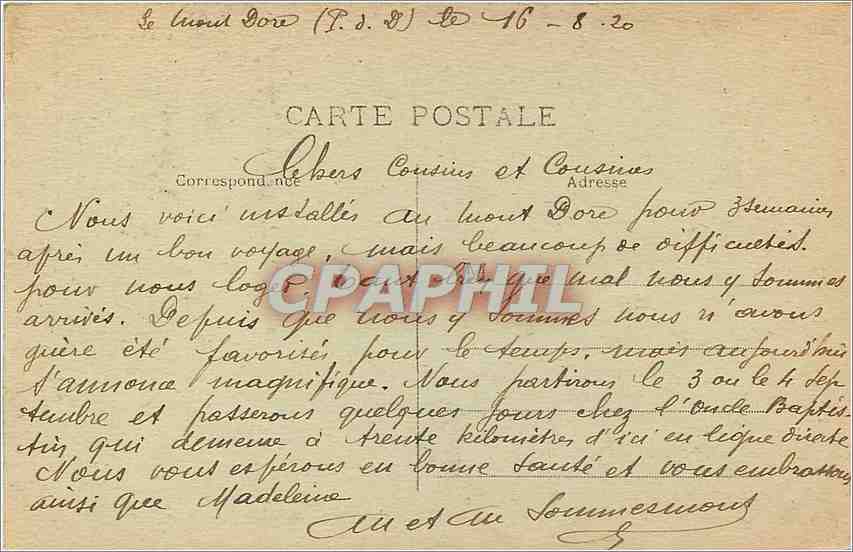 Le Mont Dore (P. d. D) le 16 - 8 - 20
CARTE POSTALE
Chers Cousins et Cousines
Correspondance
Adresse
Nous voici installés au Mont Dore pour 3 semaines
après un bon voyage, mais beaucoup de difficultés.
pour nous loger, tant bien que mal nous y sommes
CPAPHIL
arrivés. Depuis que nous y sommes nous n'avons
guère été favorisés pour le temps, mais aujourd'hui
s'annonce magnifique. Nous partirons le 3 ou le 4 Sep
tembre et passerons quelques jours chez l'Oncle Baptis-
tin qui demeure à trente kilomètres d'ici en ligne directe
Nous vous espérons en bonne santé et vous embrassons
ainsi que Madeleine
et Sommesmont